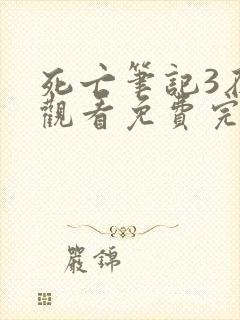 死亡筆記3
觀看免費完
嚴錦